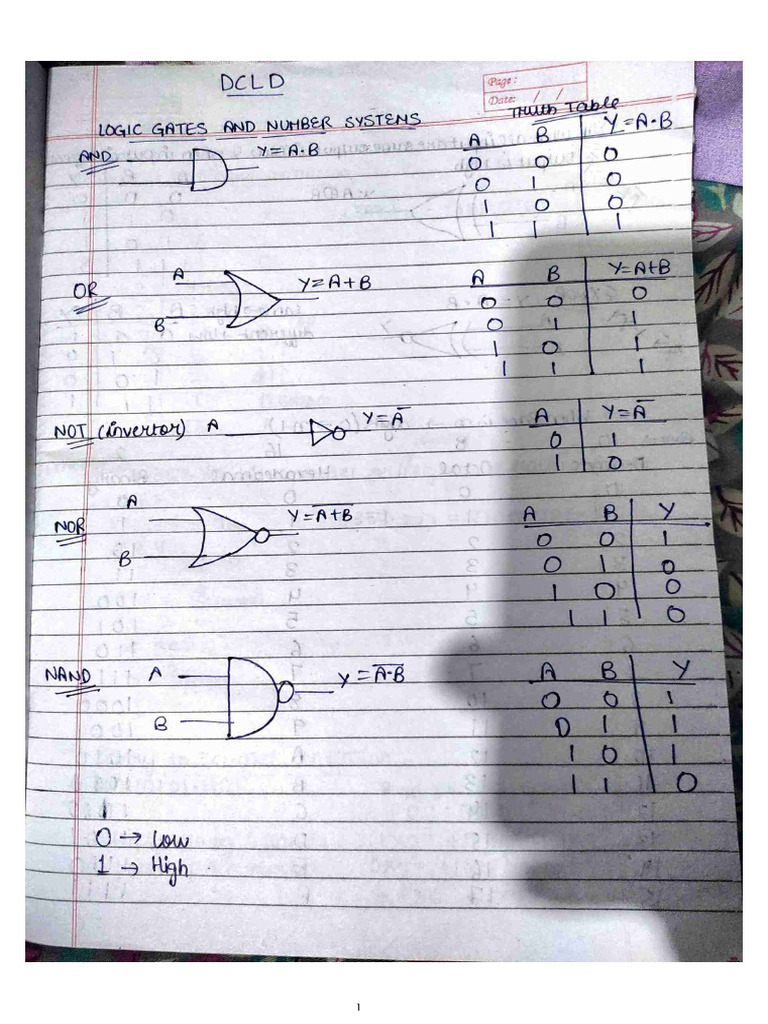 DCLD
Page:
Date: / /
LOGIC GATES AND NUMBER SYSTEMS
Truth Table
AND Y=A·B
A B Y=A·B
0 0 0
0 1 0
1 0 0
1 1 1
OR A B Y=A+B
A B Y=A+B
0 0 0
0 1 1
1 0 1
1 1 1
NOT (invertor) A Y=A̅
A Y=A̅
0 1
1 0
NOR A B Y=A̅+B
A B Y
0 0 1
0 1 0
1 0 0
1 1 0
NAND A B Y=A̅·̅B̅
A B Y
0 0 1
0 1 1
1 0 1
1 1 0
1
0 → Low
1 → High
1